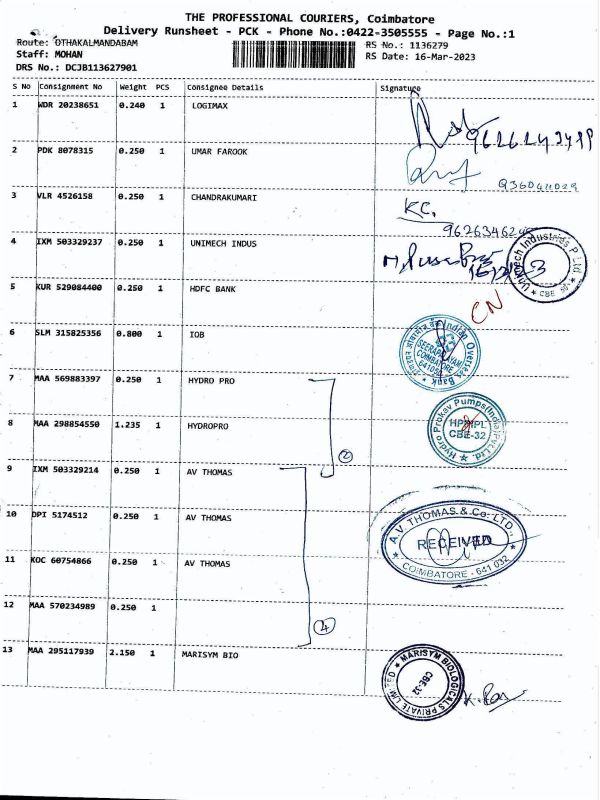 THE PROFESSIONAL COURIERS, Coimbatore
Delivery Runsheet - PCK - Phone No.:0422-3505555 - Page No.:1
Route: OTHAKALMANDABAM RS No.: 1136279
Staff: MOHAN RS Date: 16-Mar-2023
DRS No.: DCJB113627901
S No Consignment No Weight PCS Consignee Details Signature
1 WDR 20238651 0.240 1 LOGIMAX
2 PDK 8078315 0.250 1 UMAR FAROOK
3 VLR 4526158 0.250 1 CHANDRAKUMARI KC.
4 IXM 503329237 0.250 1 UNIMECH INDUS
Unimech Industries P Ltd
CBE
5 KUR 529084400 0.250 1 HDFC BANK CN
6 SLM 315825356 0.800 1 IOB
Indian Overseas Bank
COIMBATORE
7 MAA 569883397 0.250 1 HYDRO PRO
8 MAA 298854550 1.235 1 HYDROPRO
Hydro Prokav Pumps(India)Pvt.Ltd
CBE-32
2
9 IXM 503329214 0.250 1 AV THOMAS
10 DPI 5174512 0.250 1 AV THOMAS
A.V THOMAS & Co. LTD.,
RECEIVED
COIMBATORE - 641 032
11 KOC 60754866 0.250 1 AV THOMAS
12 MAA 570234989 0.250 1
4
13 MAA 295117939 2.150 1 MARISYM BIO
MARISYM BIOLOGICALS PRIVATE LIMITED
CBE-32